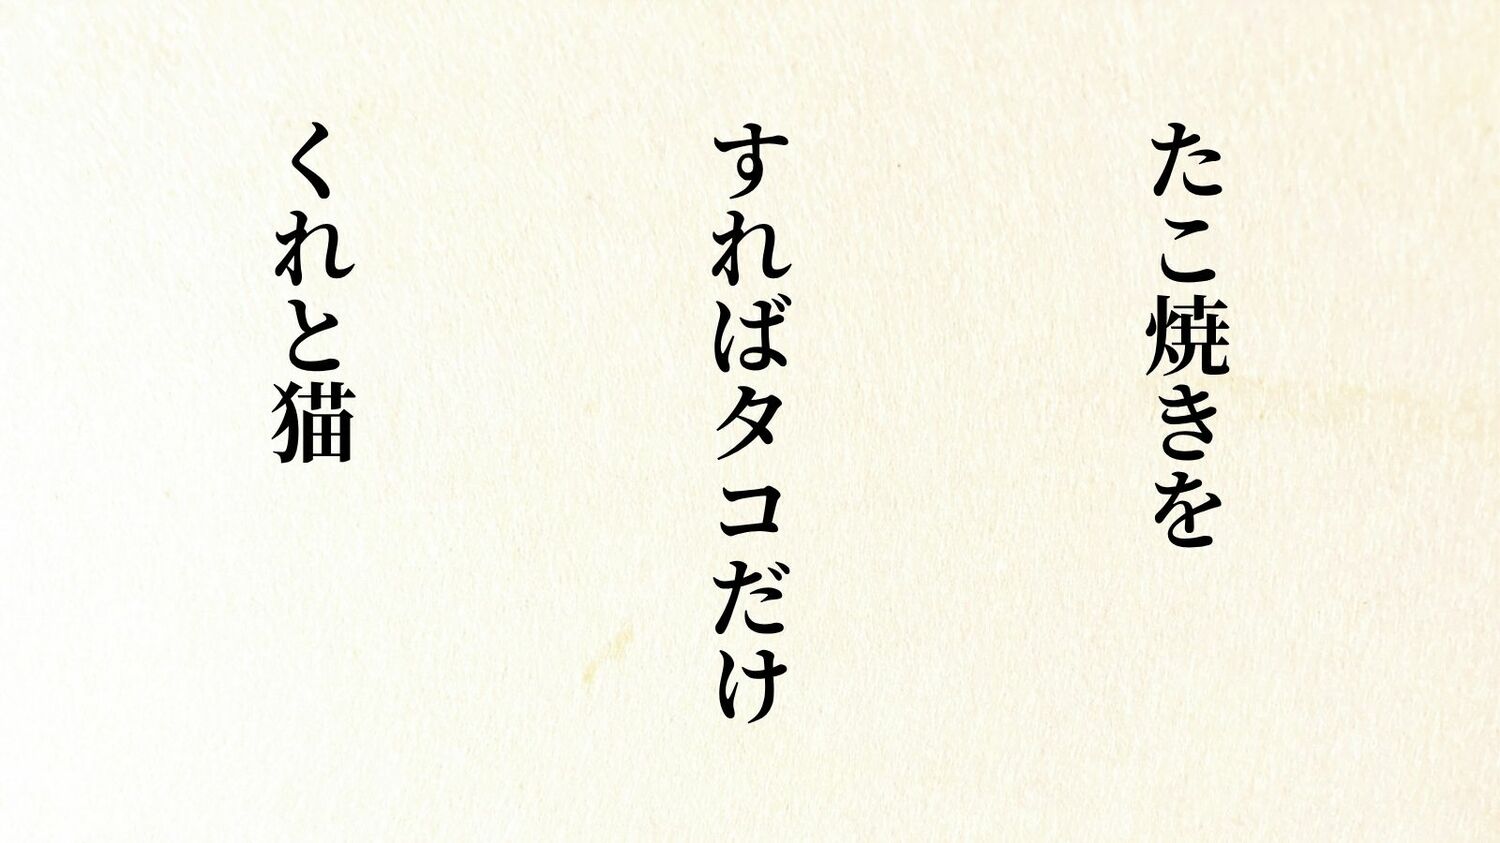 たこ焼きを
すればタコだけ
くれと猫